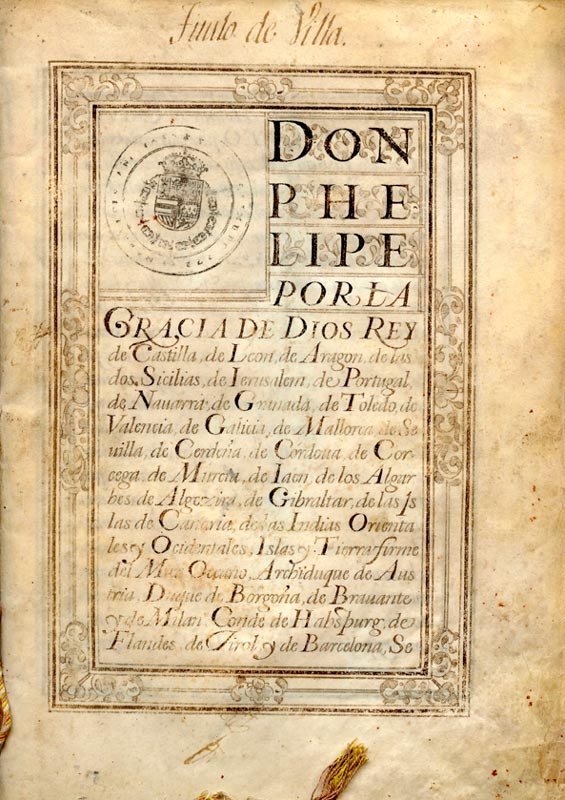 Junto de Villa.
DON
PHE
LIPE
POR LA
GRACIA DE DIOS REY
de Castilla, de Leon, de Aragon, de las
dos Sicilias, de Ierusalem, de Portugal,
de Nauarra, de Granada, de Toledo, de
Valencia, de Galicia, de Mallorca, de Se
uilla, de Cerdeña, de Cordoua, de Cor
cega, de Murcia, de Iaen, de los Algar
bes, de Algezira, de Gibraltar, de las Is
las de Canaria, de las Indias Orienta
les y Ocidentales, Islas y Tierra firme
del Mar Oceano, Archiduque de Aus
tria, Duque de Borgoña, de Brauante
y de Milan. Conde de Habspurg, de
Flandes, de Tirol y de Barcelona, Se